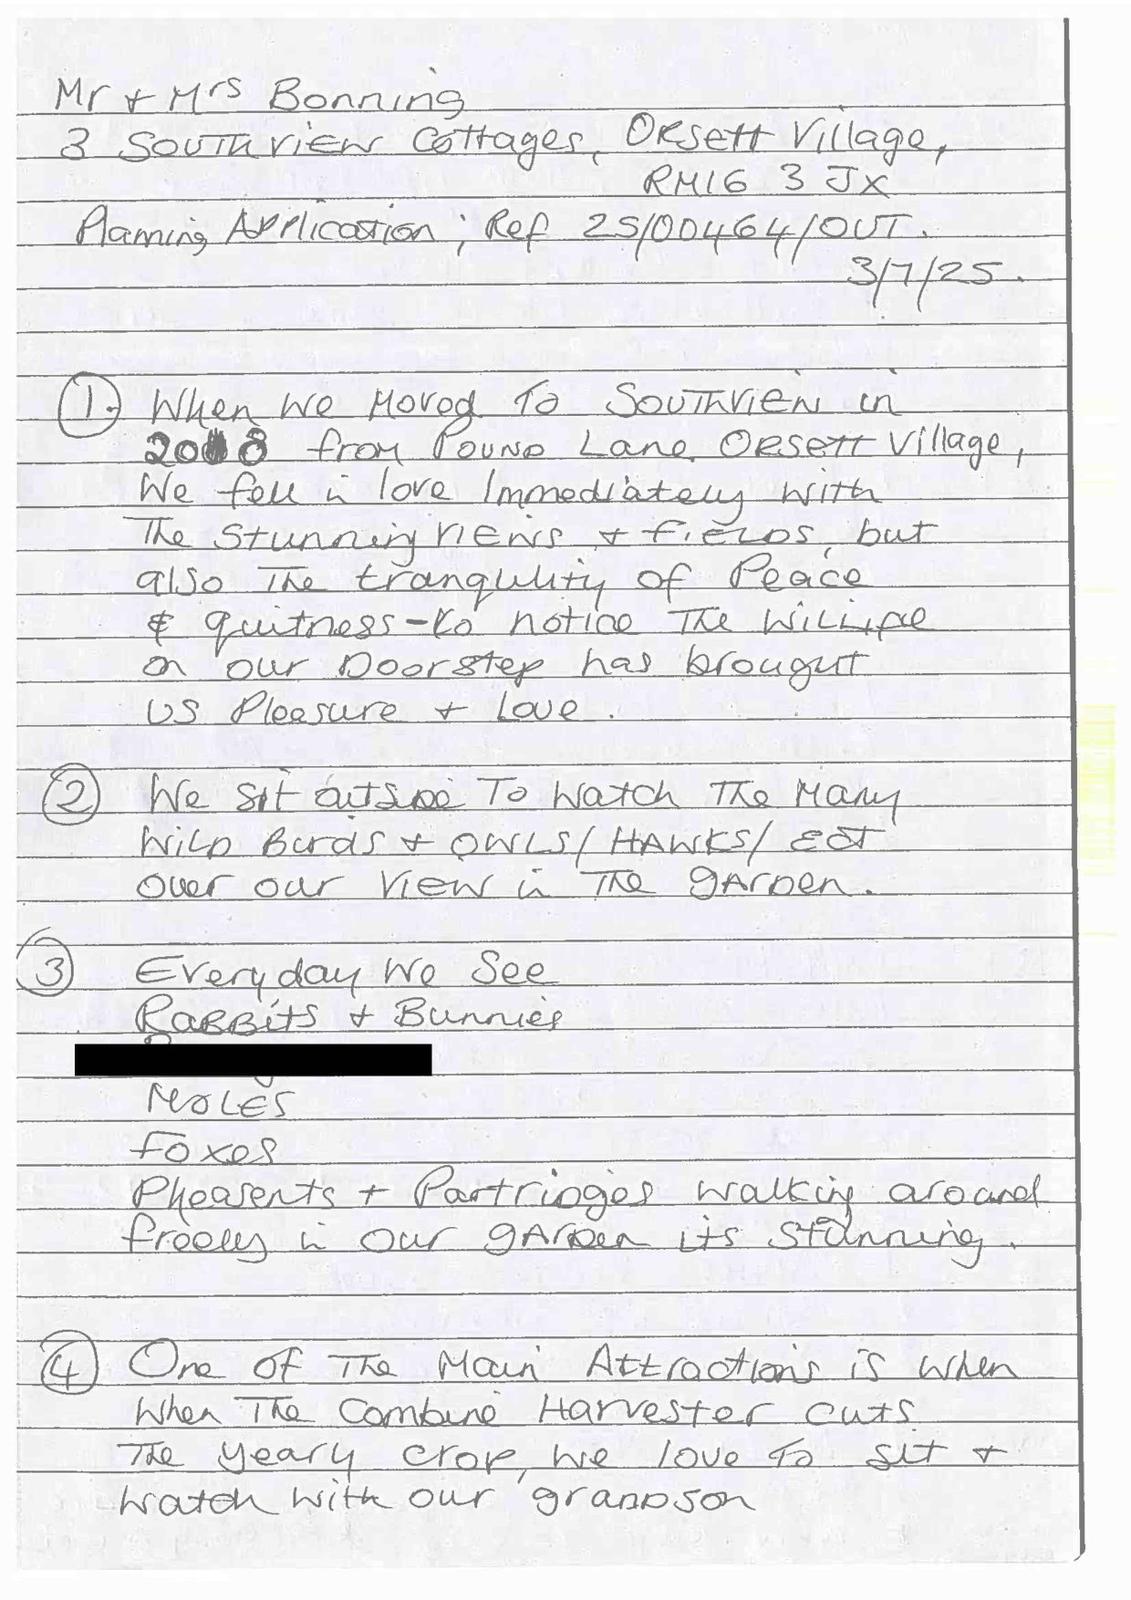 Mr + Mrs Bonning
3 Southview Cottages, Orsett Village,
RM16 3JX
Planning Application; Ref 25/00464/OUT.
3/7/25.
1. When we moved to Southview in
from Pound Lane Orsett Village,
We fell in love Immediately with
The stunning views + fields, but
also The tranqulity of Peace
& quitness - to notice The Willife
on our Doorstep has brought
us Pleasure + Love.
2 We sit outside To Watch The Many
Wild Birds + OWLS/HAWKS/ECT
over our view in The garden.
3 Everyday We See
Rabbits + Bunnies
Moles
Foxes
Pheasents + Partridges walking around
freely in our garden its stunning.
4 One of The Main Attractions is when
When The Combine Harvester cuts
The yeary crop, we love to sit +
Watch with our grandson